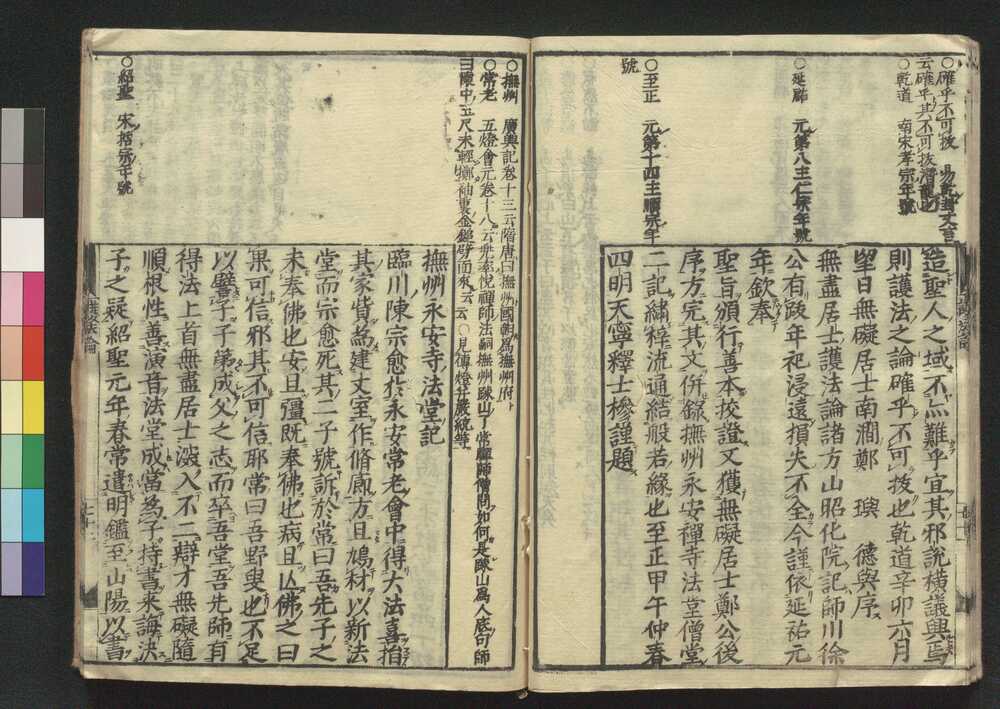 ○確乎不可拔　易乾卦文言
云確乎其不可拔潛龍也
○乾道　南宋孝宗年號
○延祐　元第八主仁宗年號
○至正　元第十四主順宗年
號
造聖人之域不亦難乎宜其邪說橫議興焉
則護法之論確乎不可拔也乾道辛卯六月
望日無礙居士南澗鄭　璵　德與序
無盡居士護法論諸方山昭化院記師川徐
公有政年祀浸遠損失不全今謹依延祐元
年欽奉
聖旨頒行善本挍證又獲無礙居士鄭公後
序方完其文併錄撫州永安禪寺法堂僧堂
二記繡梓流通結般若緣也至正甲午仲春
四明天寧釋士槮謹題
○撫州　廣輿記卷十三云隋唐曰撫州國朝為撫州府
○常老　五燈會元卷十八云兜率悅禪師法嗣撫州疎山了常禪師僧問如何是疎山爲人底句師
曰懷中玉尺未輕擲袖裏金鎚劈面來云云○見傳燈幷嚴統等
○紹聖　宋哲宗年號
撫州永安寺法堂記
臨川陳宗愈於永安常老會中得大法喜指
其家貲為建丈室作脩廊方且鳩材以新法
堂而宗愈死其二子號訴於常曰吾先子之
未奉佛也安且彊既奉佛也病且亾佛之曰
果可信邪其不可信耶常曰吾野叟也不足
以譬子子第成父之志而卒吾堂吾先師有
得法上首無盡居士深入不二辯才無礙隨
順根性善演音法堂成當為子持書求誨決
子之疑紹聖元年春常遣明鑑至山陽以書